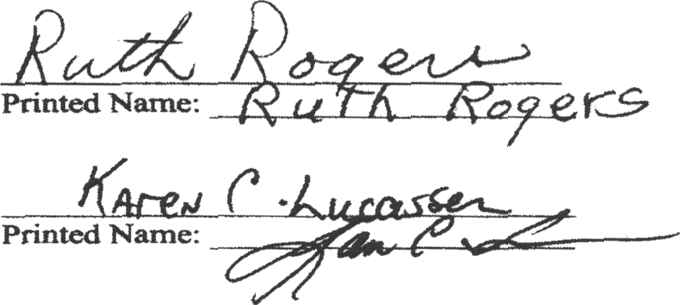 Ruth Rogers
Printed Name: Ruth Rogers
Karen C. Lucassen
Printed Name: